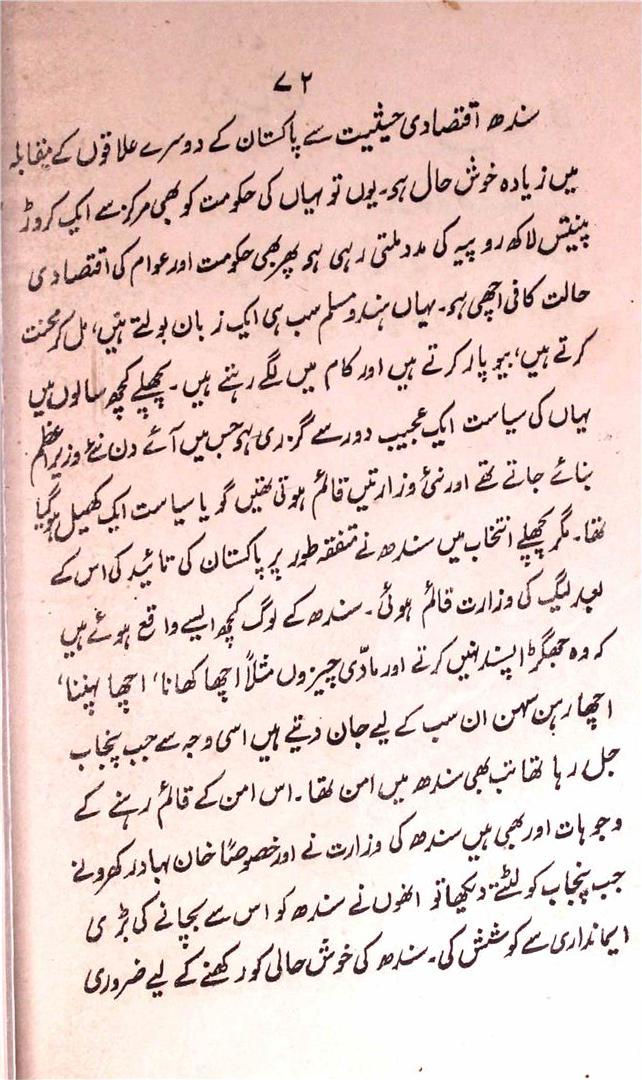 ۷۲
سندھ اقتصادی حیثیت سے پاکستان کے دوسرے علاقوں کے مقابلہ
میں زیادہ خوش حال ہو۔ یوں تو یہاں کی حکومت کو بھی مرکز سے ایک کروڑ
پینتس لاکھ روپیہ کی مدد ملتی رہی ہو پھر بھی حکومت اور عوام کی اقتصادی
حالت کافی اچھی ہو۔ یہاں ہندو مسلم سب ہی ایک زبان بولتے ہیں، مل کر محنت
کرتے ہیں، بیوپار کرتے ہیں اور کام میں لگے رہتے ہیں۔ پچھلے کچھ سالوں میں
یہاں کی سیاست ایک عجیب دور سے گزری ہو جس میں آئے دن نئے وزیر اعظم
بنائے جاتے تھے اور نئی وزارتیں قائم ہوتی تھیں گویا سیاست ایک کھیل ہو گیا
تھا۔ مگر پچھلے انتخاب میں سندھ نے متفقہ طور پر پاکستان کی تائید کی اس کے
بعد لیگ کی وزارت قائم ہوئی۔ سندھ کے لوگ کچھ ایسے واقع ہوئے ہیں
کہ وہ جھگڑا پسند نہیں کرتے اور مادّی چیزوں مثلاً اچھا کھانا، اچھا پہننا،
اچھا رہن سہن ان سب کے لیے جان دیتے ہیں اسی وجہ سے جب پنجاب
جل رہا تھا تب بھی سندھ میں امن تھا۔ اس امن کے قائم رہنے کے
وجوہات اور بھی ہیں سندھ کی وزارت نے اور خصوصاً خان بہادر کھرونے
جب پنجاب کو لٹتے دیکھا تو انھوں نے سندھ کو اس سے بچانے کی بڑی
ایمانداری سے کوشش کی۔ سندھ کی خوش حالی کو رکھنے کے لیے ضروری